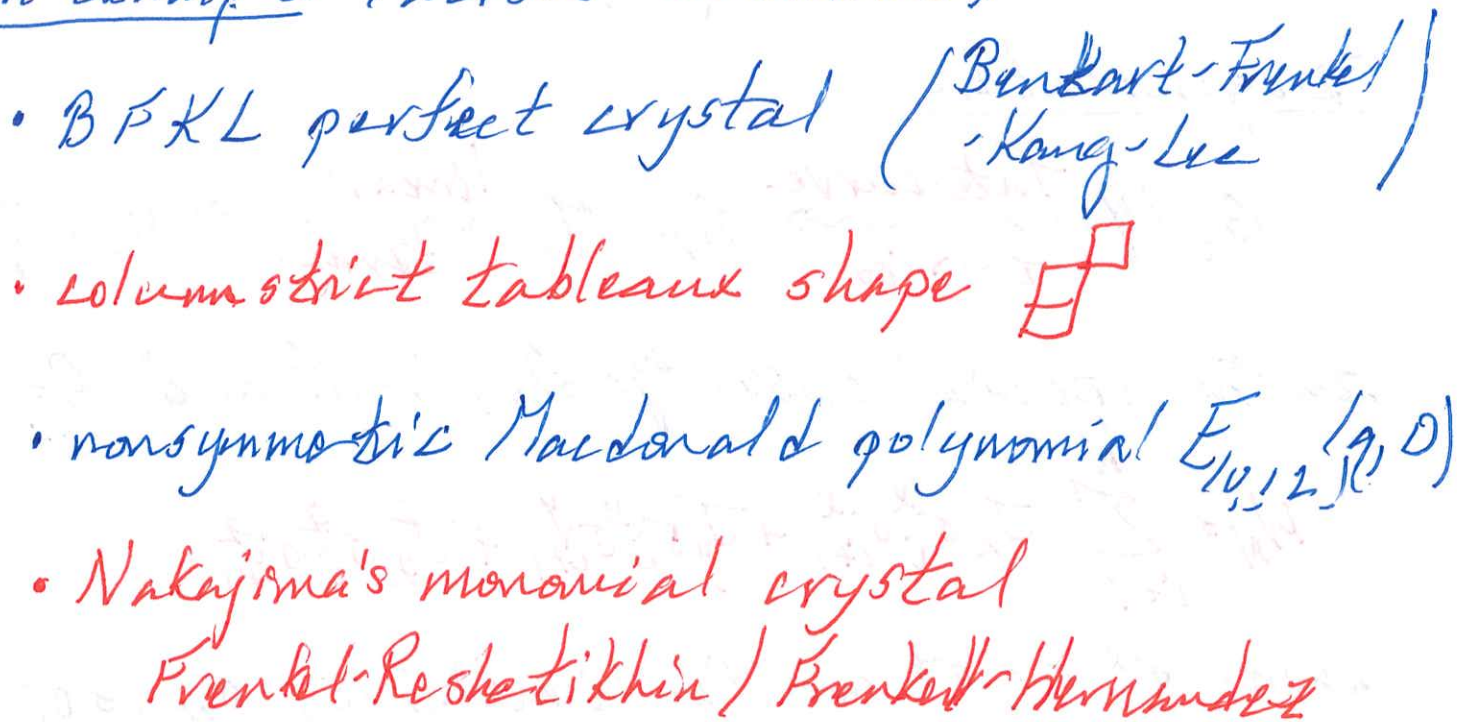 • BFKL perfect crystal (Benkart-Frenkel
-Kang-Lee)
• column strict tableaux shape
• nonsymmetric Macdonald polynomial E_{(0,1,2)}(q,0)
• Nakajima's monomial crystal
Frenkel-Reshetikhin / Frenkel-Hernandez